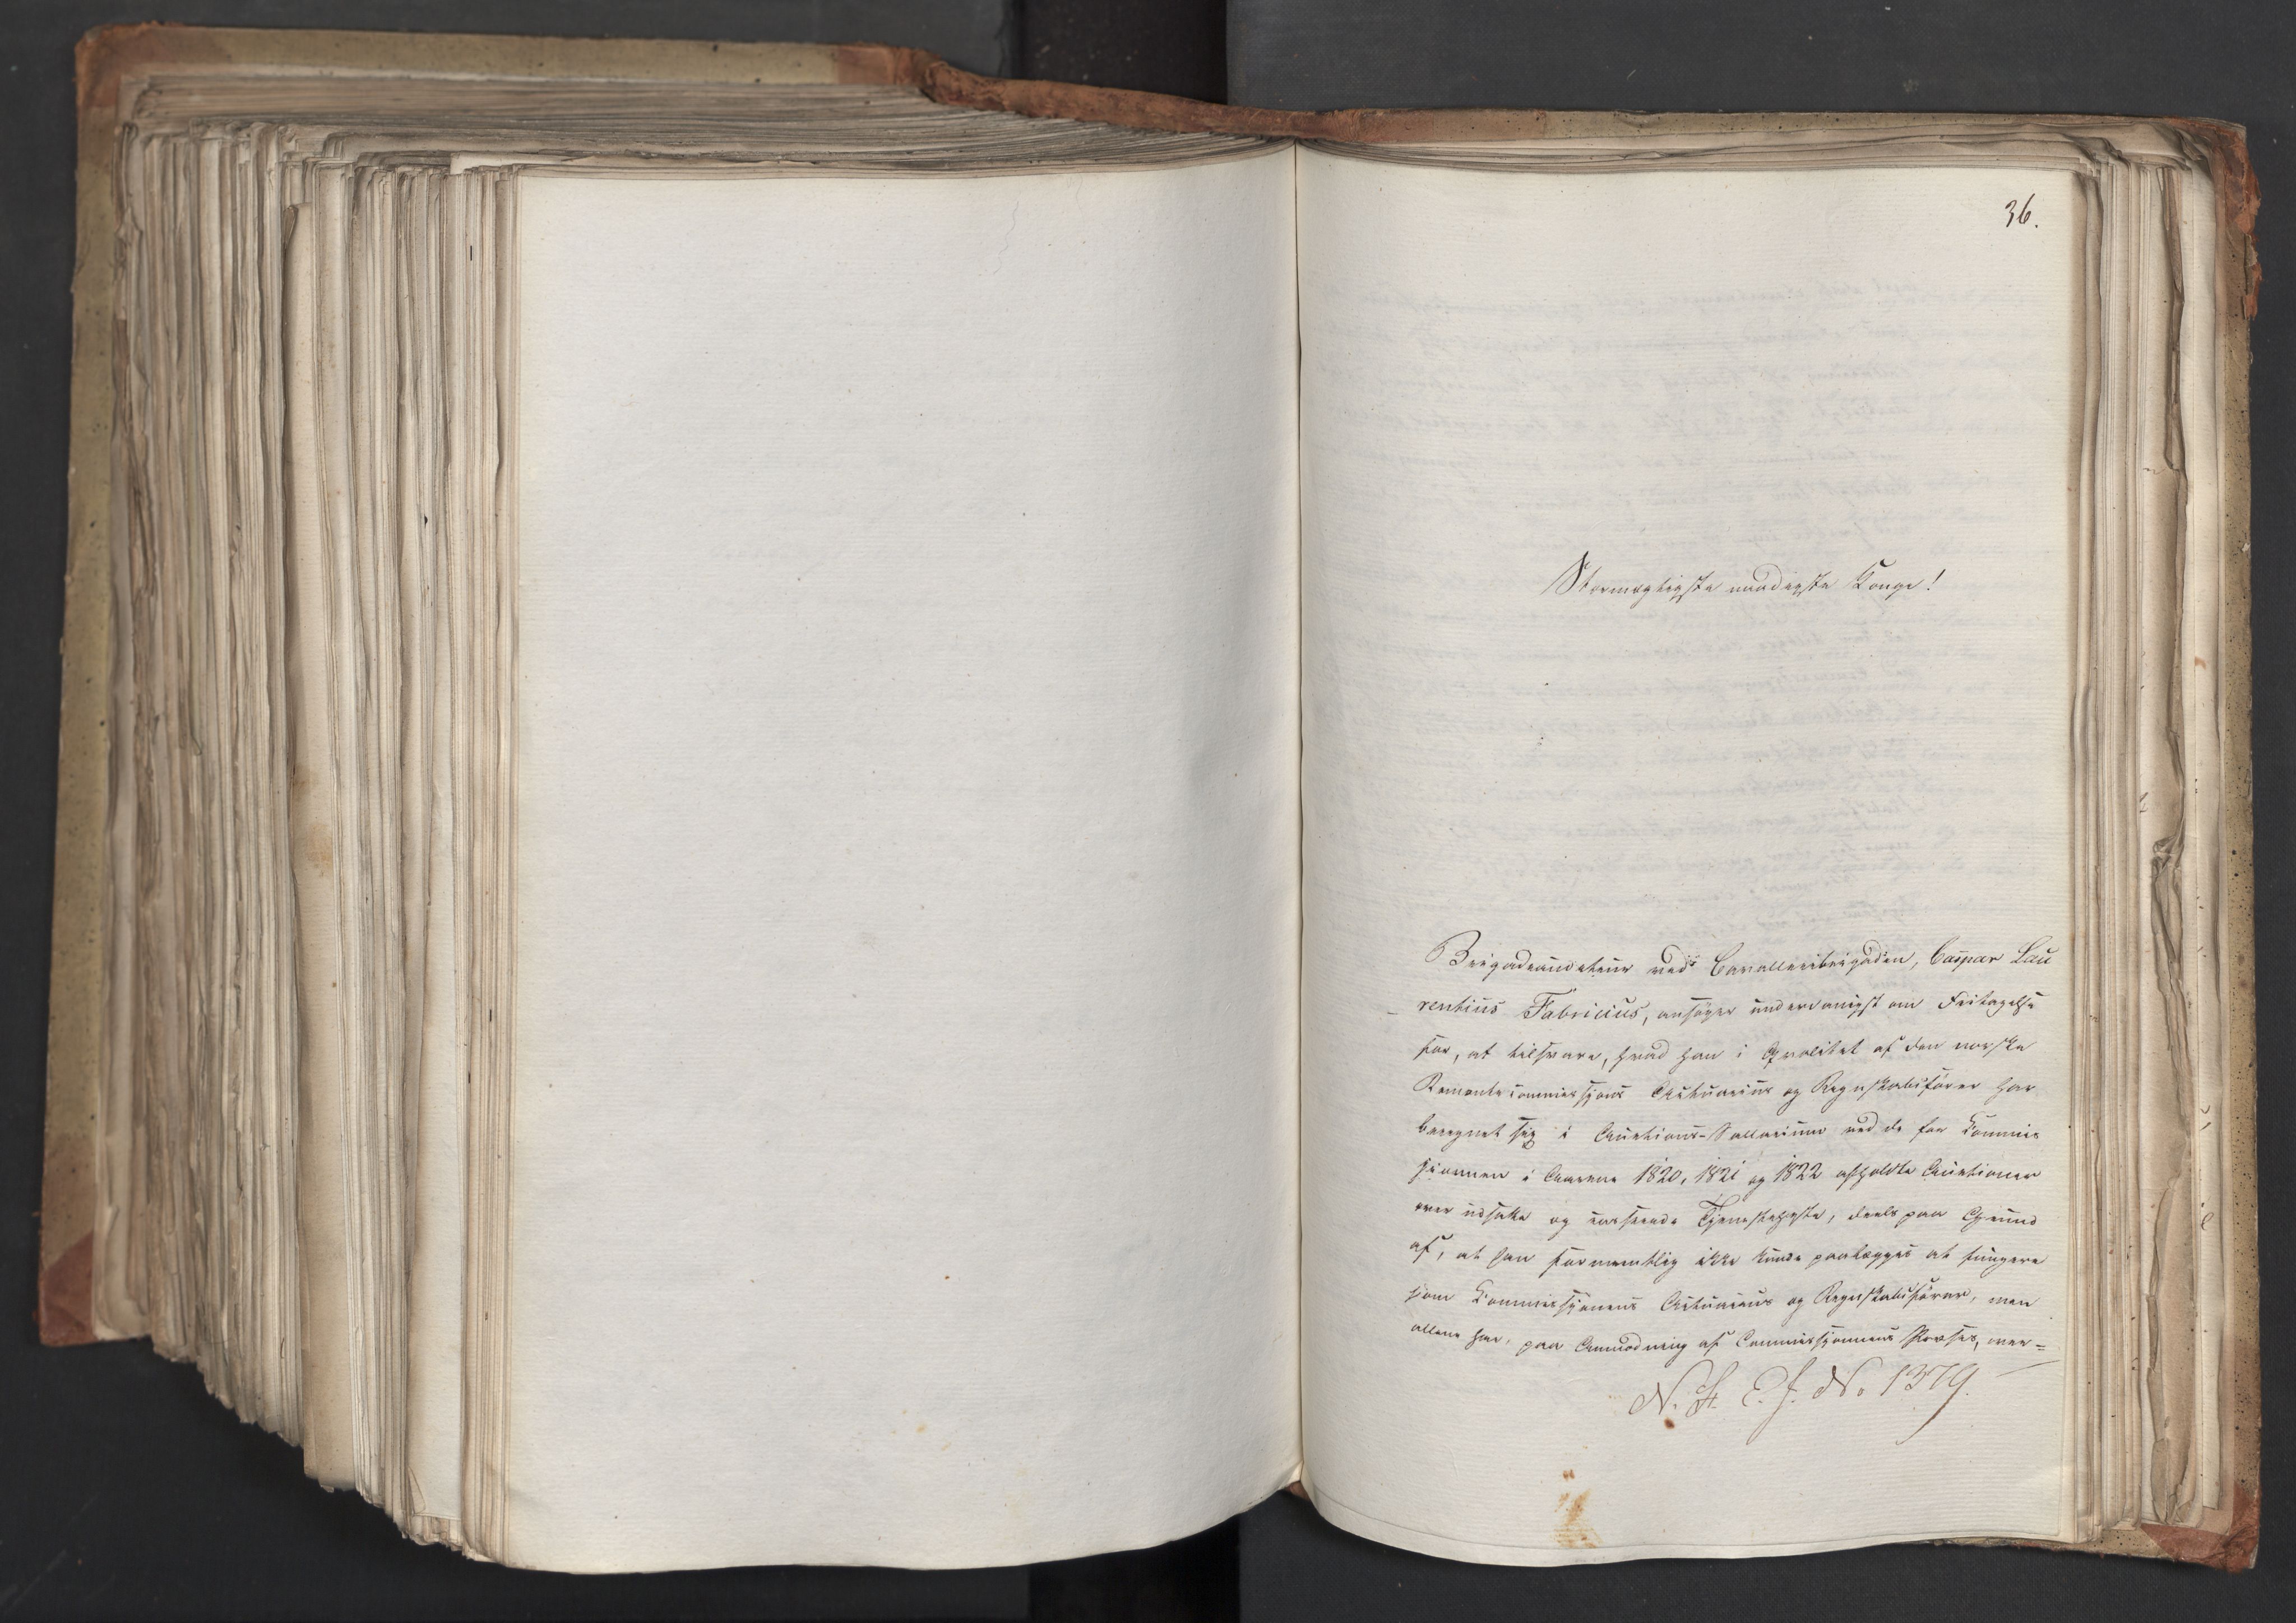 36.
Stormægtigste naadigste Konge!
Brigadeauditeur ved Cavalleribrigaden, Caspar Lau
rentius Fabricius, ansøger underdanigst om Fritagelse
for, at tilsvare, hvad han i Qvalitet af den norske
Remontecommissjons Actuarius og Regnskabsfører har
beregnet sig i Auctions-Sallarium ved de for Commis
sionen i Aarene 1820, 1821 og 1822 afholdte Auctioner
over udsatte og casserede Tjenesteheste, deels paa Grund
af, at han formentlig ikke kunde paalægges at fungere
som Kommissjonens Actuarius og Regnskabsfører, men
allene har, paa Anmodning af Commissjonens Præses, over=
N. H. E. J. No 1379.